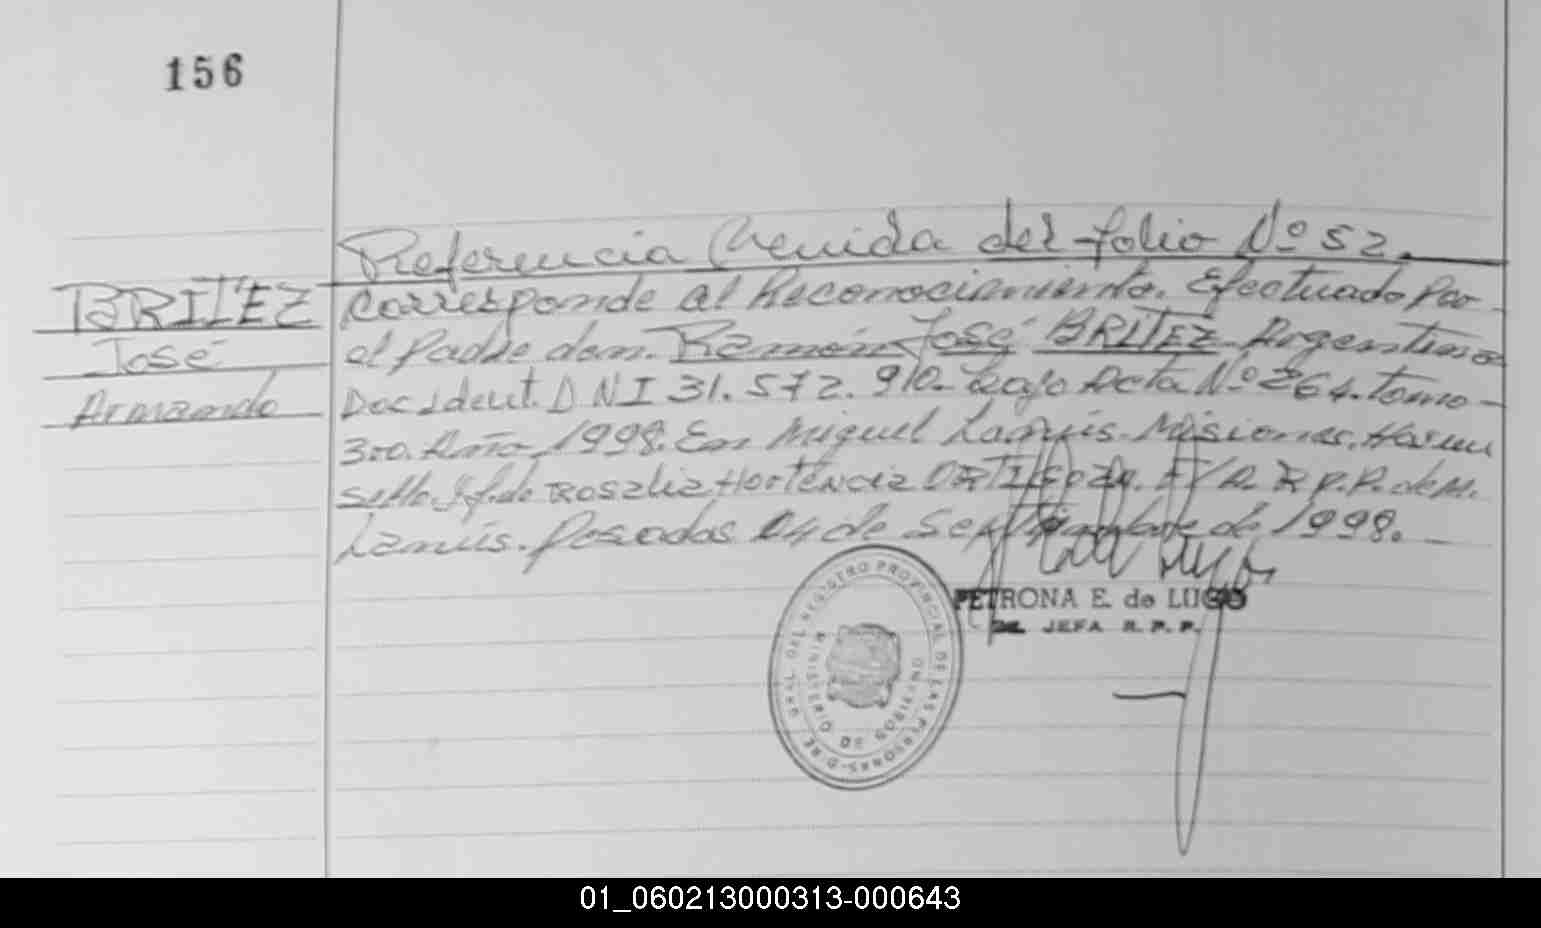 156
Referencia Venida del folio Nº 52.
BRITEZ
José
Armando
Corresponde al Reconocimiento. Efectuado Por
el Padre don. Ramón José BRITEZ. Argentino
Doc Ident. D N I 31.572.910. bajo Acta Nº 264. tomo
300. Año 1998. En Miguel Lanús. Misiones. Hay un
sello. Rosalia Hortencia R.P.P. de M.
Lanús. Posadas 04 de Septiembre de 1998.
PETRONA E. de LUGO
JEFA R. P. P.
GRAL DEL REGISTRO PROVINCIAL DE LAS PERSONAS-DIRE
MINISTERIO DE GOBIERNO
01_060213000313-000643